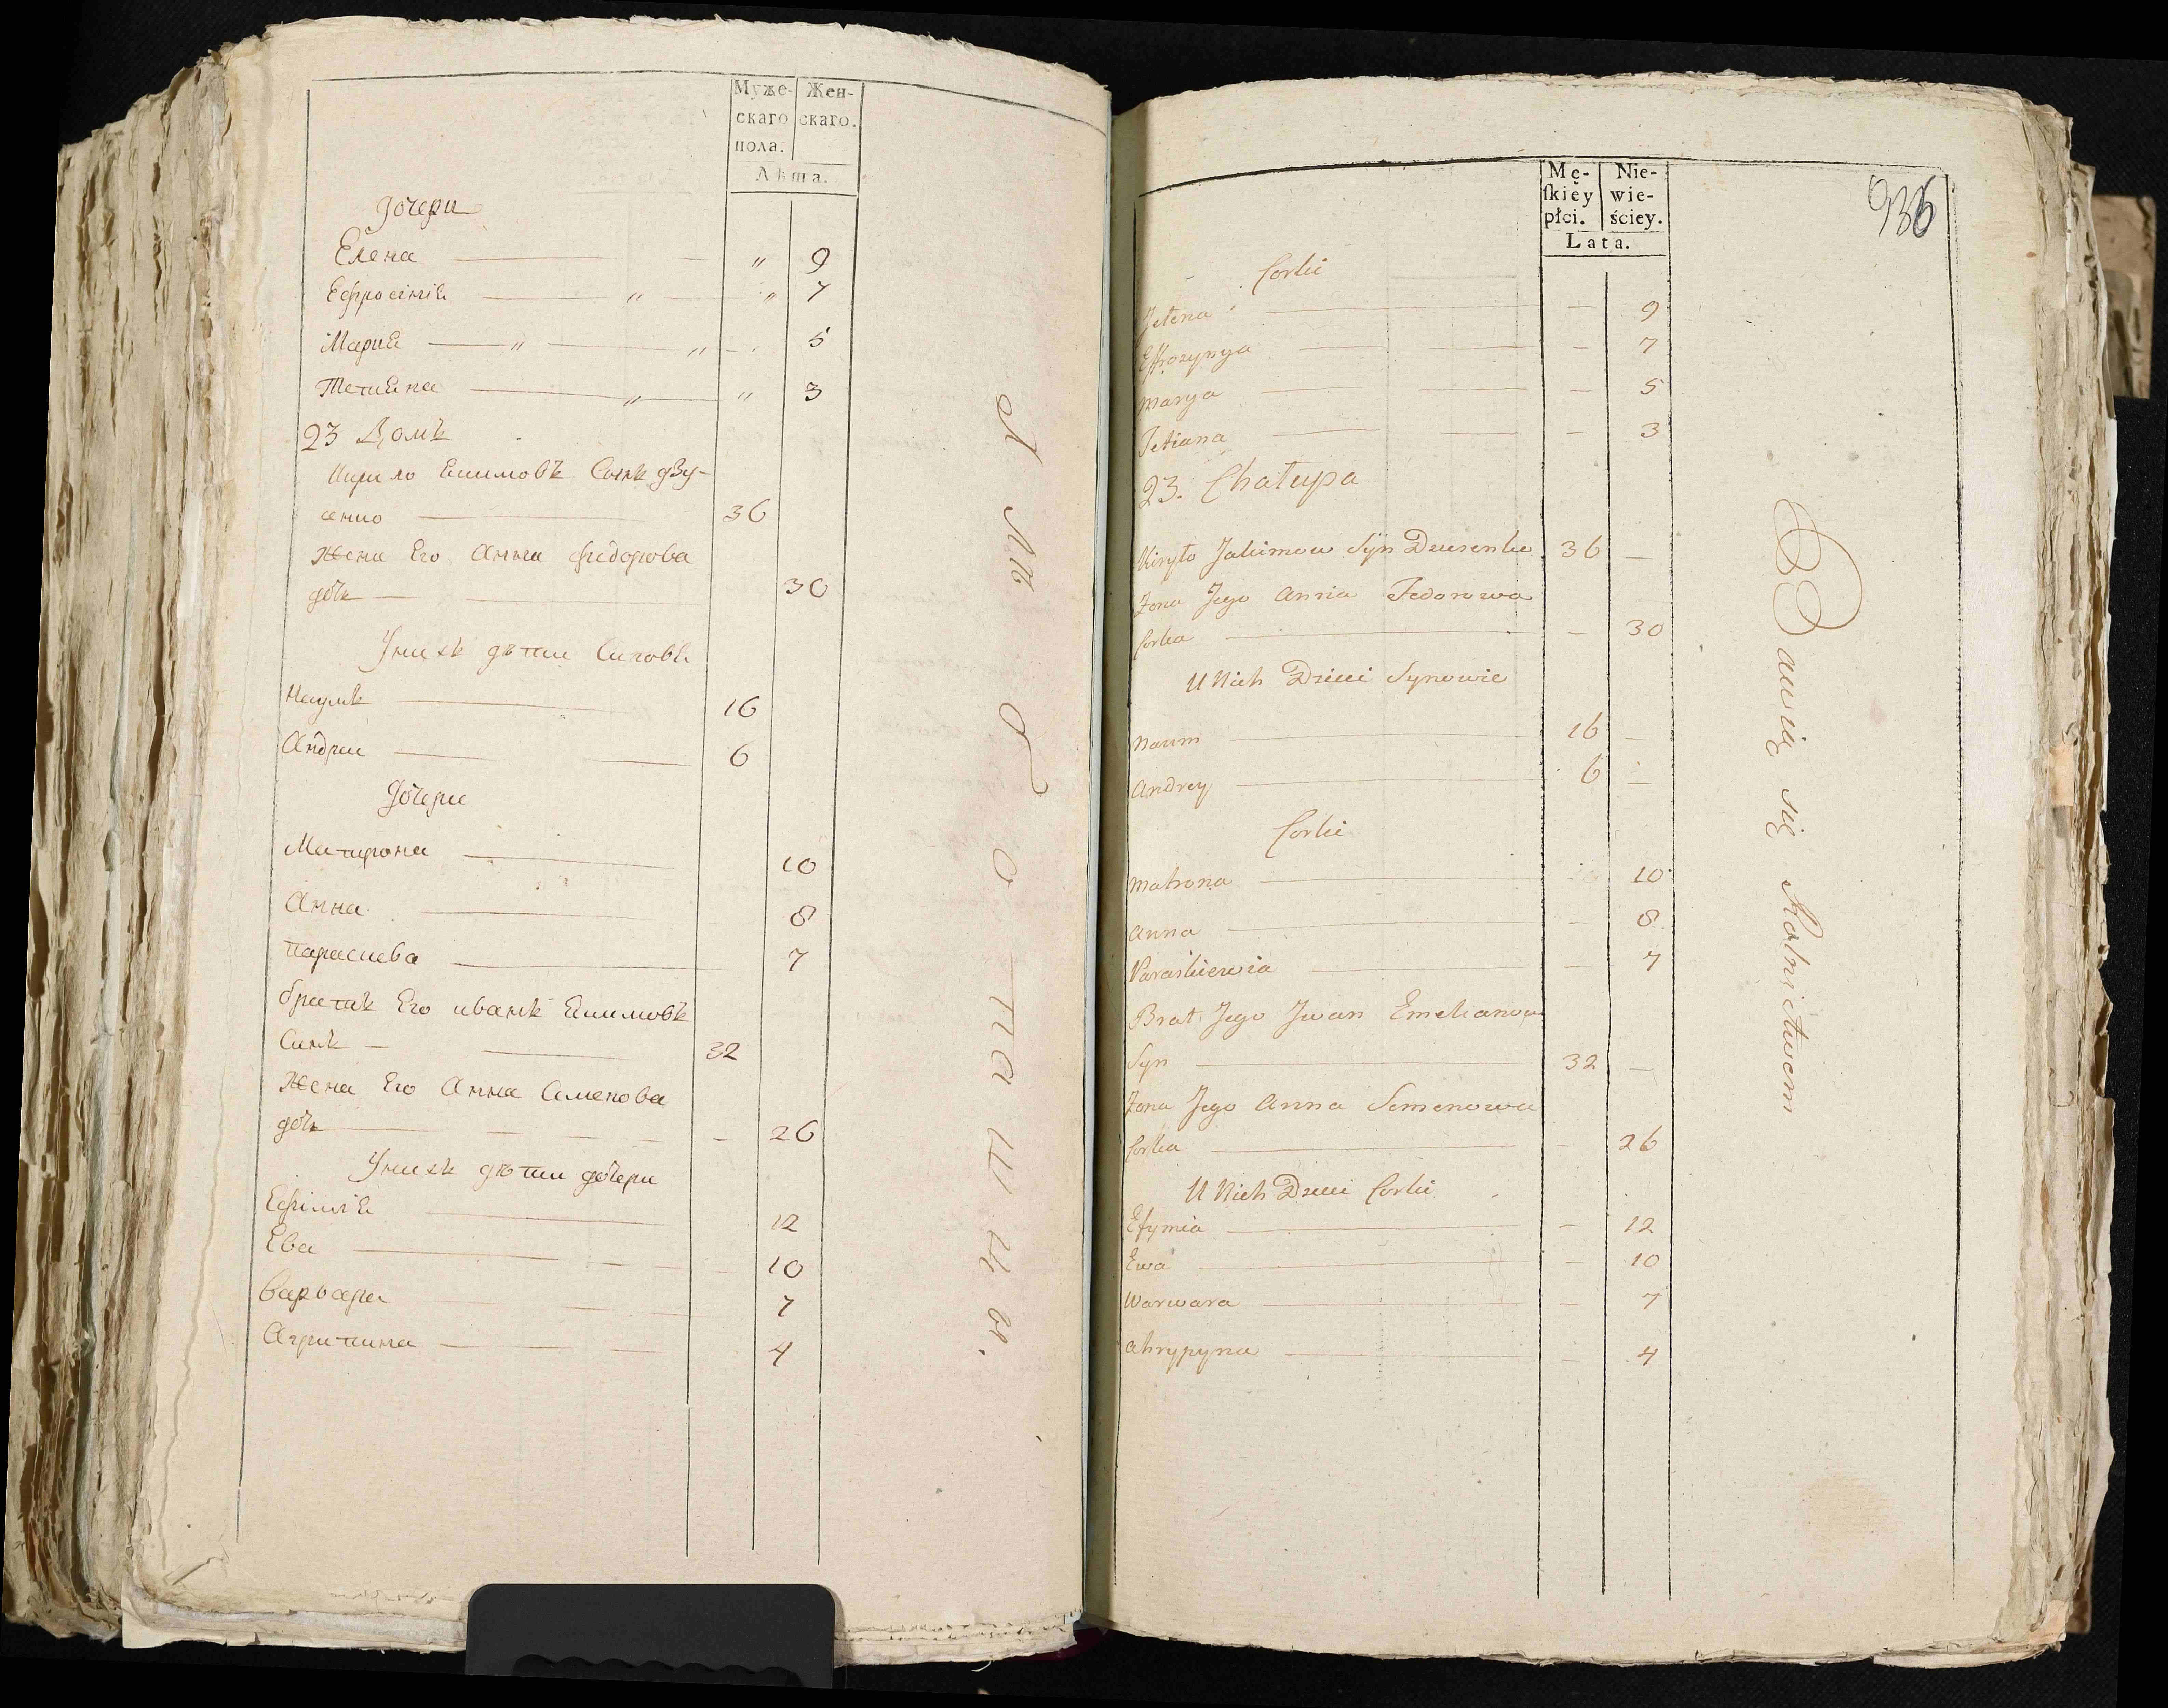 Муже-
скаго
пола.
Жен-
скаго.
Лѣта.
Дочери
Елена " 9
Ефросинія " " 7
Марія " " 5
Тетияна " " 3
23 Домъ
Кирило Екимовъ Синъ Дзу-
сенко 36
Жена Его Анна Федорова
дочь 30
У нихъ дѣти Синовя
Наумъ 16
Андрий 6
Дочери
Матирона 10
Анна 8
Параскева 7
братъ Его иванъ Екимовъ
Синъ 32
Жена Его Анна Семенова
дочь 26
У нихъ дѣти дочери
Ефимія 12
Ева 10
Варвара 7
Агрипина 4
936
Mę-
ſkiéy
płci.
Nie-
wie-
ściey.
Lata.
Corki
Jełena 9
Effrozynya 7
Marya 5
Tetiana 3
23. Chałupa
Kiryło Jakimow Syn Dzusenko 36
Zona Jego Anna Fedorowa
Corka 30
U Nich Dzieci Synowie
Naum 16
Andrey 6
Corki
Matrona 10
Anna 8
Paraskiewia 7
Brat Jego Jwan Emelianow
Syn 32
Zona Jego Anna Semenowa
Corka 26
U Nich Dzieci Corki
Efymia 12
Ewa 10
Warwara 7
Ahrypyna 4
Bawią się Rolnictwem